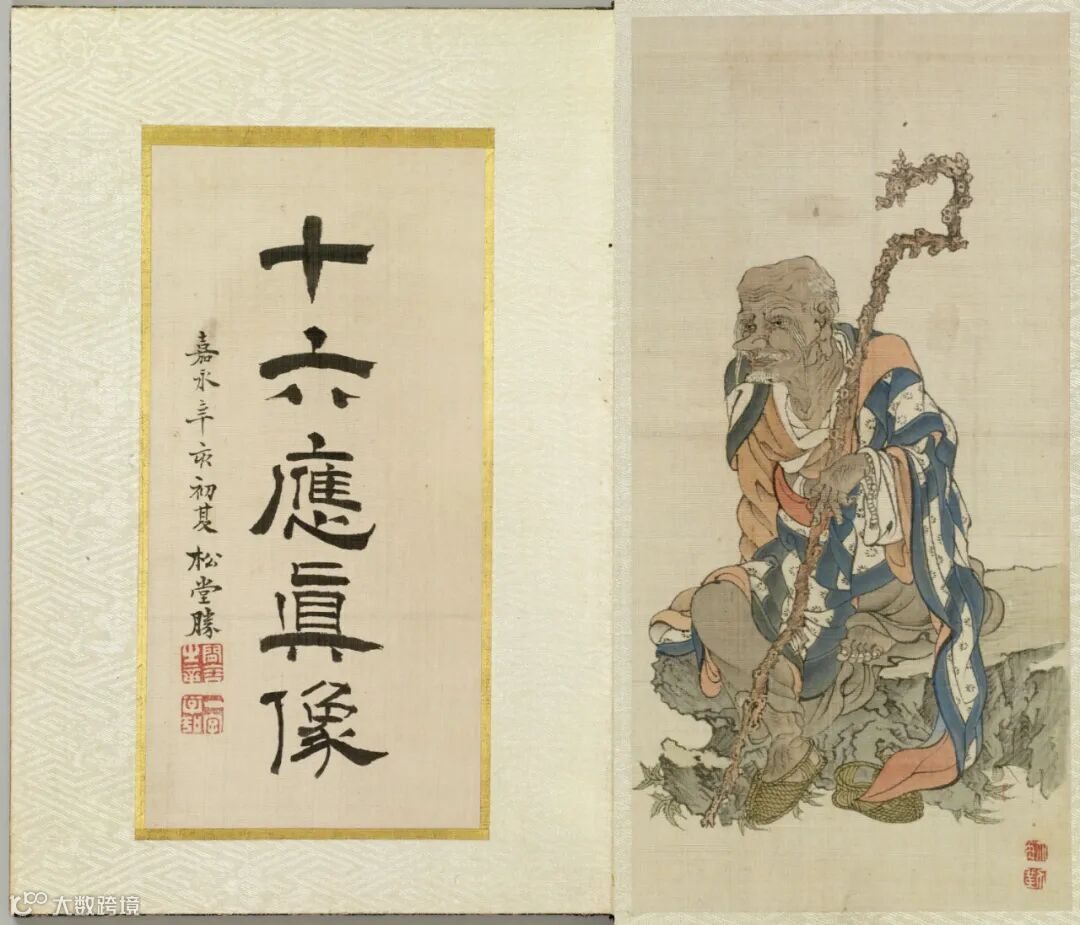 十六應眞像
嘉永辛亥初夏 松堂勝
大数跨境